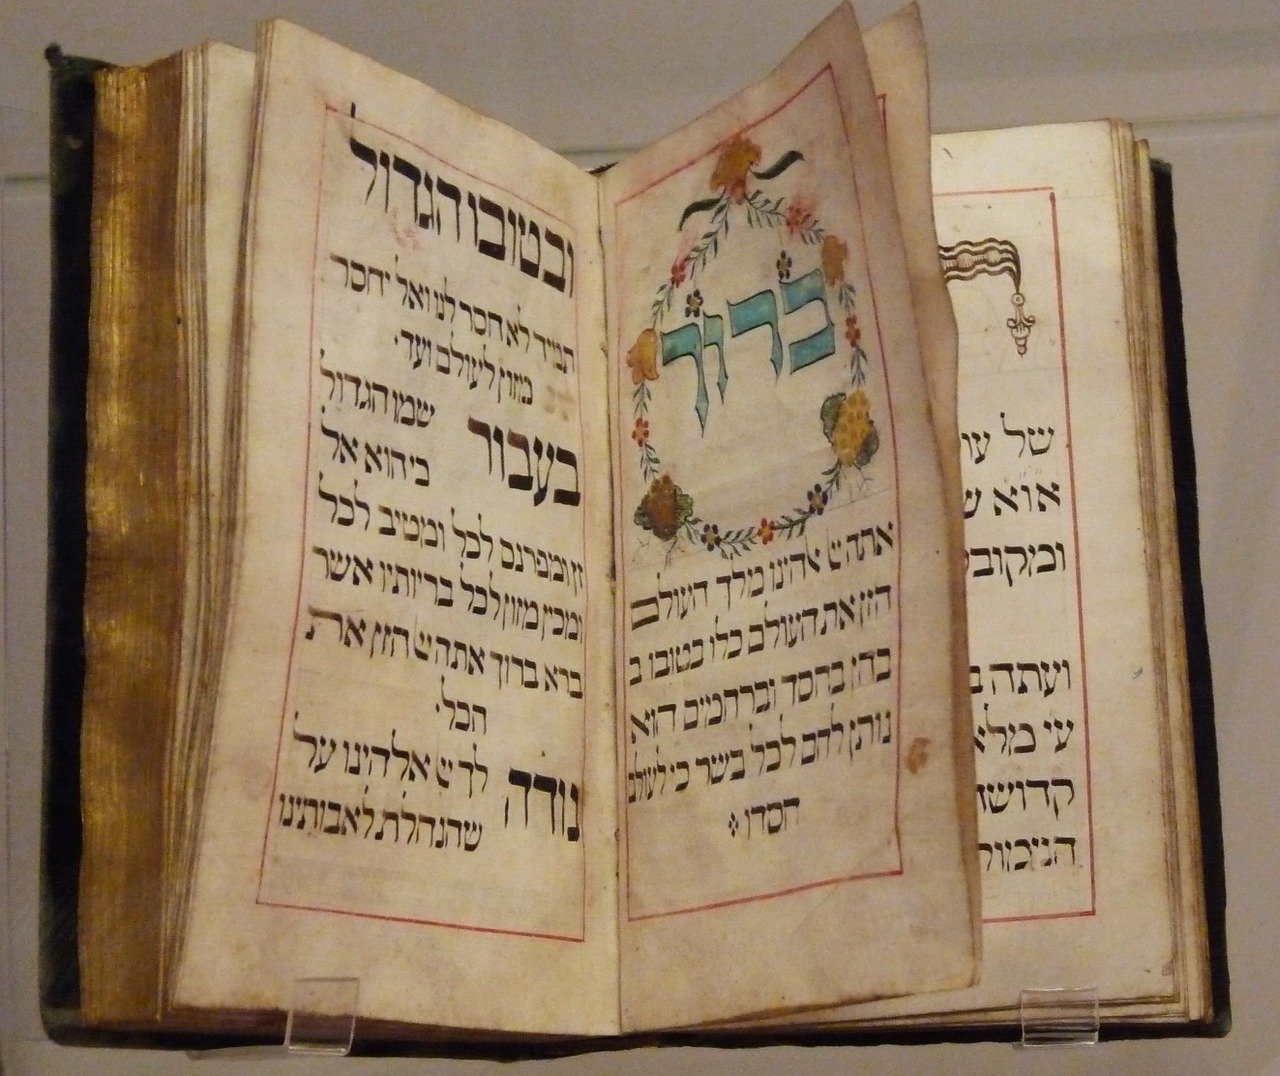 של
ומקובל
ועתה
עי מלא
ברוך
אתה יי אלהינו מלך העולם
הזן את העולם כלו בטובו ב
בחן בחסד וברחמים הוא
נותן לחם לכל בשר כי לעולם
חסדו
ובטובו הגדול
תמיד לא חסר לנו ואל יחסר
מזון לעולם ועד·
בעבור שמו הגדול
כי הוא אל
זן ומפרנס לכל ומטיב לכל
ומכין מזון לכל בריותיו אשר
ברא ברוך אתה יי הזן את
הכל·
נודה לך יי אלהינו על
שהנחלת לאבותינו